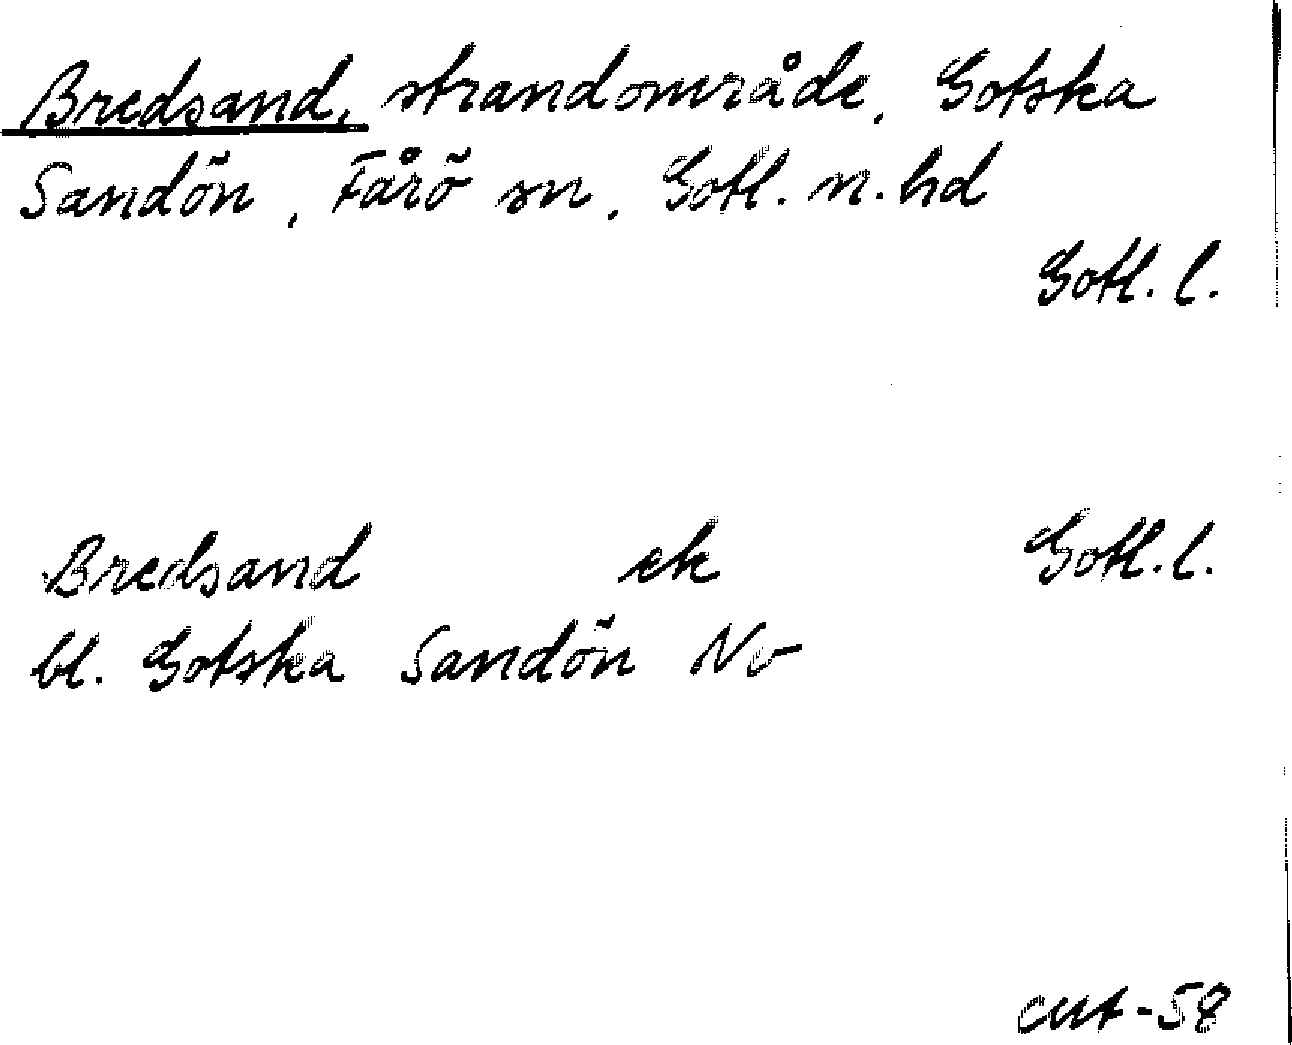 Bredsand, strandområde, Gotska
Sandön, Fårö sn, Gotl. n. hd
Gotl. l.
Bredsand ek Gotl. l.
bl. Gotska Sandön Nv
-58